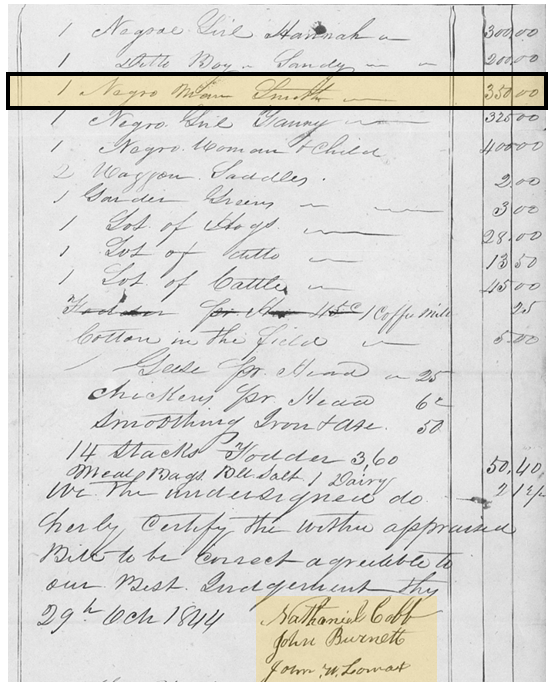 1 Negroe Girl Hannah 300.00
1 Ditto Boy Sandy 200.00
1 Negro Man Smith 350.00
1 Negro Girl Fanny 325.00
1 Negro Woman & Child 400.00
2 Waggon Saddles. 2.00
1 Garden Greens 3.00
1 Lot of Hogs 28.00
1 Lot of ditto 13.50
1 Lot of Cattle 45.00
Fodder pr 1 Coffe Mill 25
Cotton in the field 5.00
Geese pr Head 25
chickens pr Head
Smoothing Iron & ase. 50
14 Stacks Fodder 3,60 50,40
Meal Bags Salt 1 Dairy
We the undersigned do
herby Certify the within appraised
Bill to be Correct agreeible to
our Best Judgement this
29th Oct 1844 Nathaniel Cobb
John Burnett
John W. Lomax